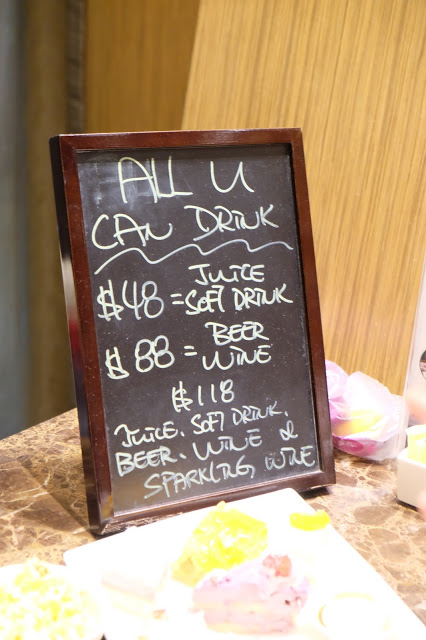 ALL U
CAN DRINK
JUICE
$48 = SOFT DRINK
BEER
$88 = WINE
$118
JUICE. SOFT DRINK.
BEER. WINE &
SPARKLING WINE